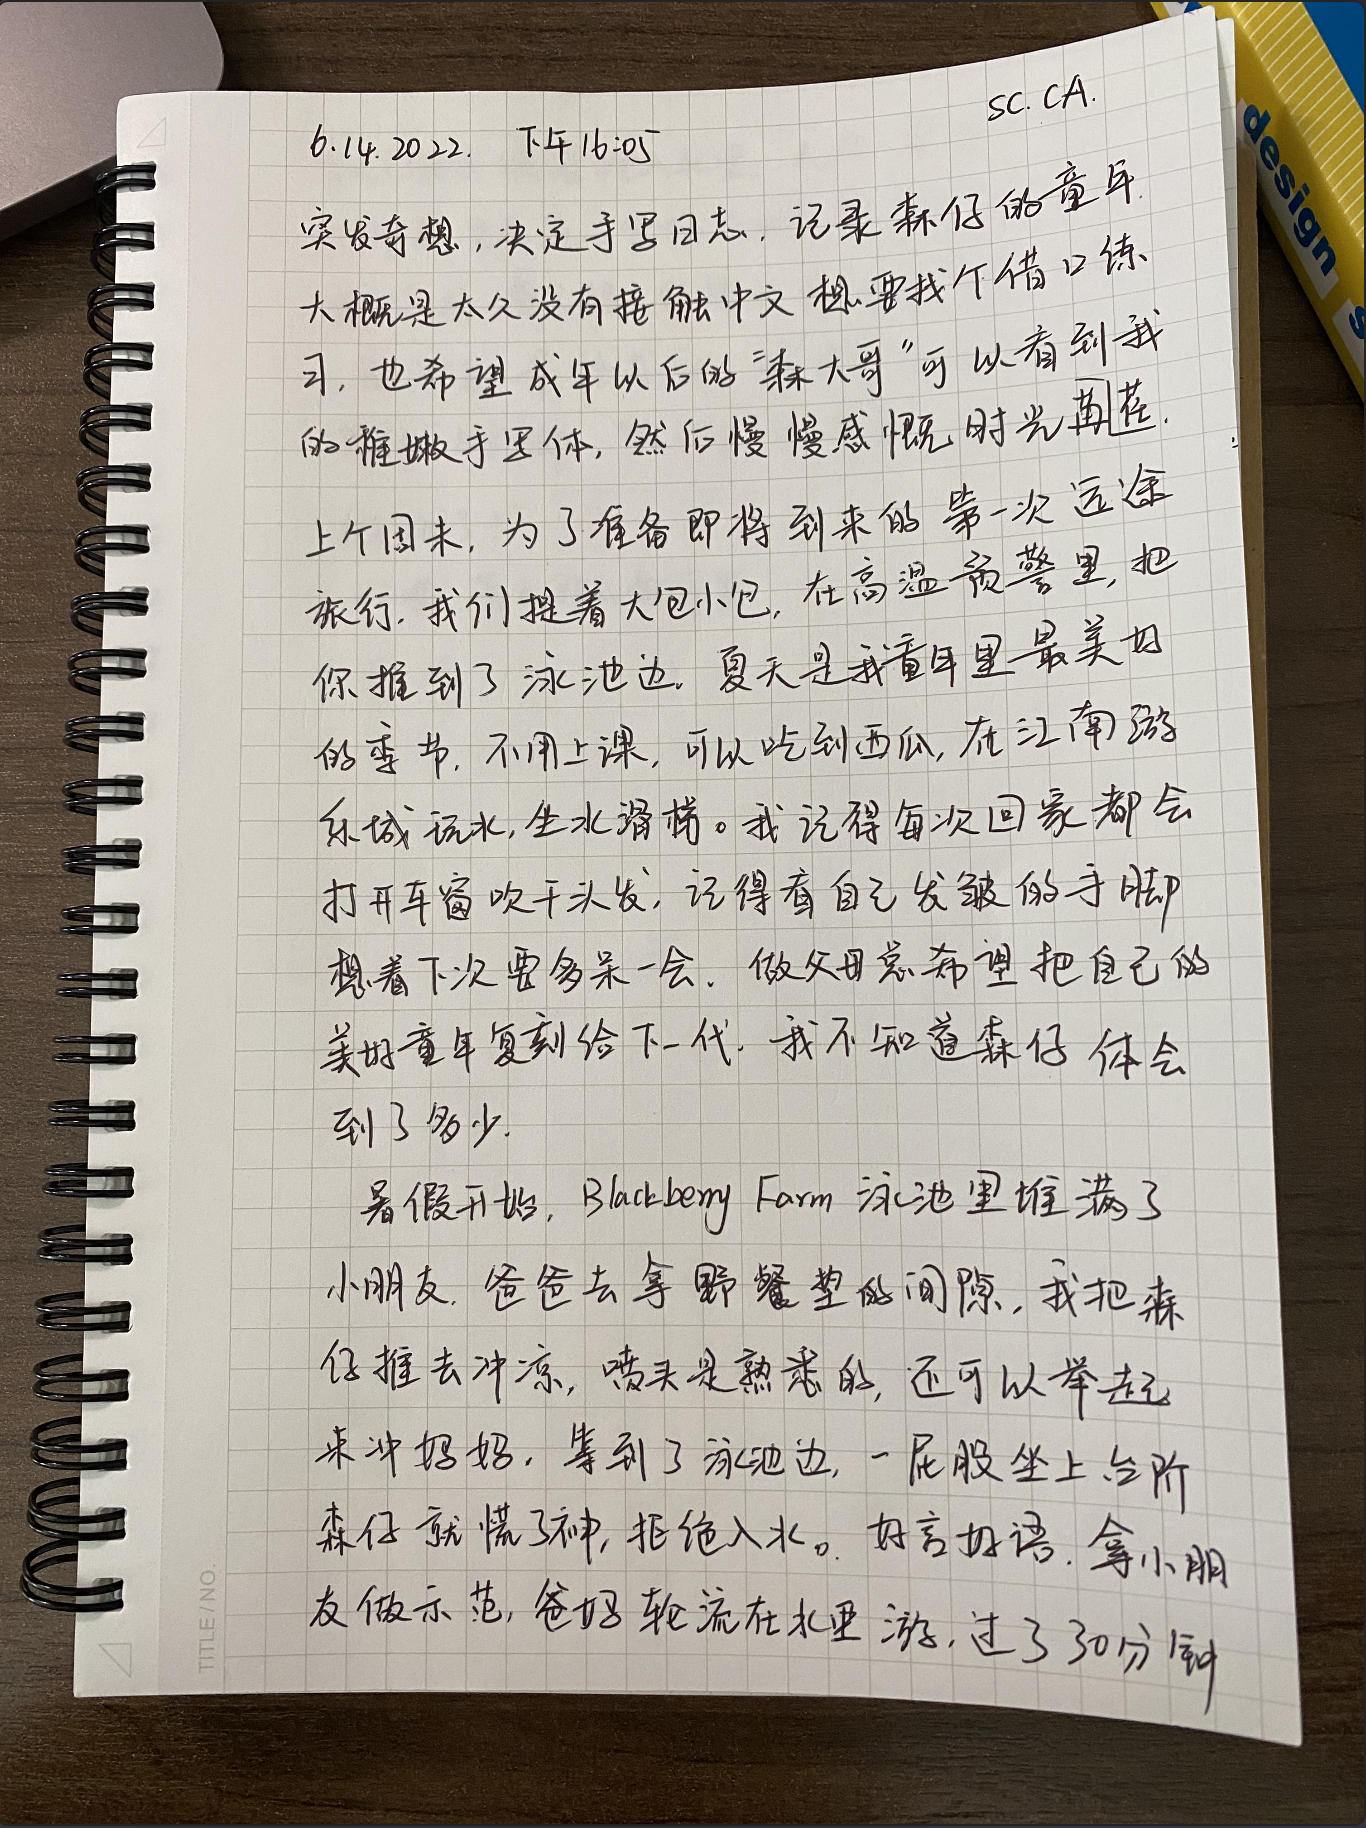 SC. CA.
6.14.2022. 下午16:05
突发奇想，决定手写日志，记录森仔的童年.
大概是太久没有接触中文想要找个借口练
习，也希望成年以后的“森大哥”可以看到我
的稚嫩手写体，然后慢慢感慨时光荏苒.
上个周末，为了准备即将到来的第一次远途
旅行，我们提着大包小包，在高温预警里，把
你推到了泳池边。夏天是我童年里最美好
的季节，不用上课，可以吃到西瓜，在江南游
乐城玩水，坐水滑梯。我记得每次回家都会
打开车窗吹干头发，记得看自己发皱的手脚
想着下次要多呆一会. 做父母总希望把自己的
美好童年复刻给下一代. 我不知道森仔体会
到了多少.
暑假开始，Blackberry Farm 泳池里堆满了
小朋友. 爸爸去拿野餐垫的间隙，我把森
仔推去冲凉，喷头是熟悉的，还可以举起
来冲妈妈，等到了泳池边，一屁股坐上台阶
森仔就慌了神，拒绝入水。好言好语，拿小朋
友做示范，爸妈轮流在水里游，过了30分钟
TITLE/NO.
design
s